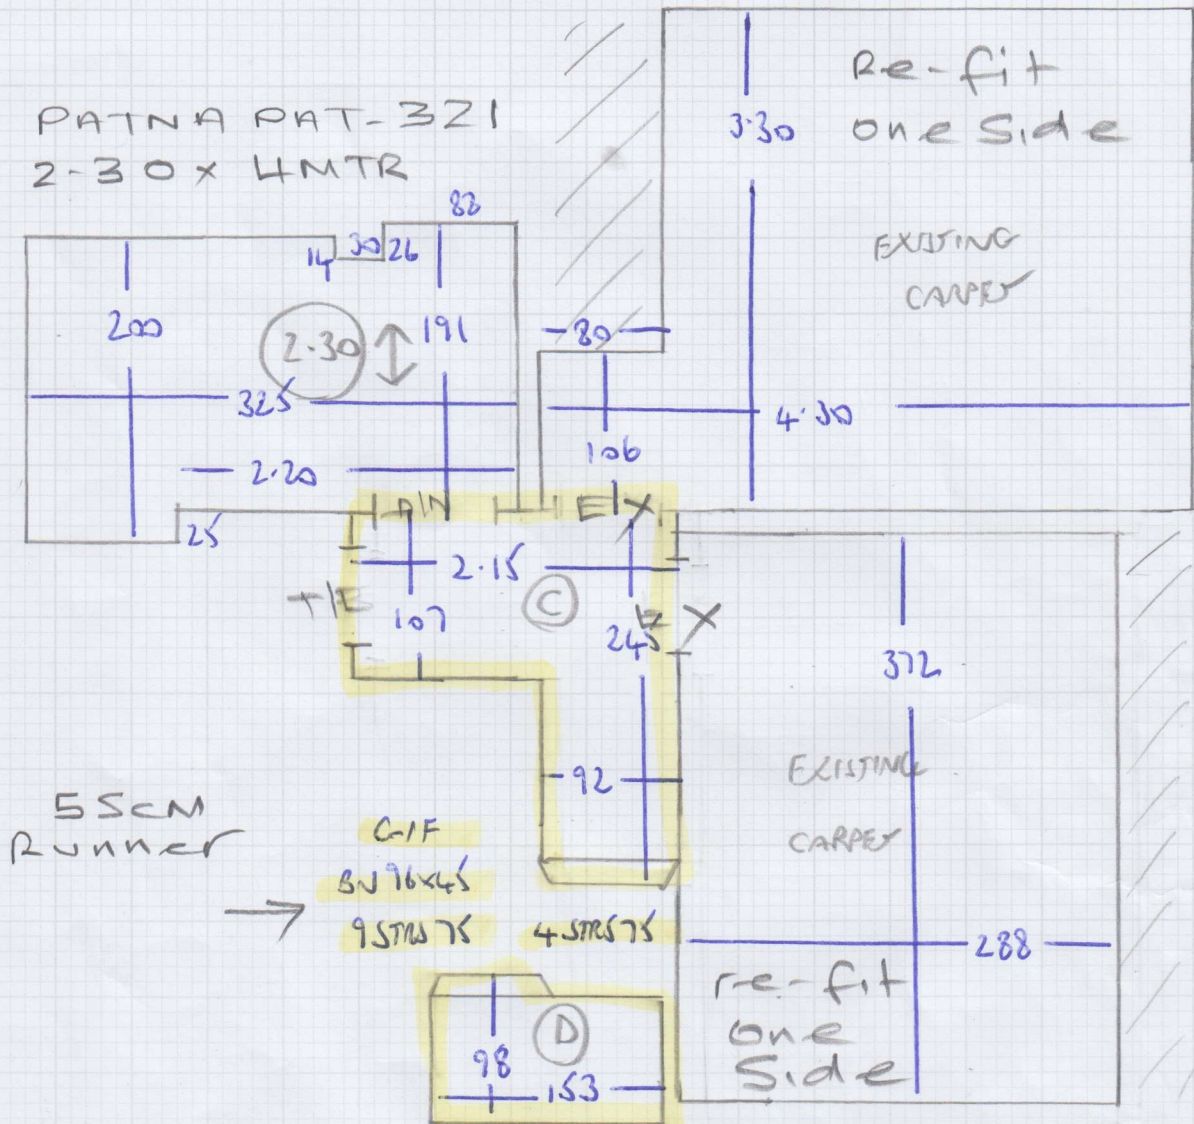 PATNA PAT-321
2-30 x 4MTR
Re-fit
one Side
3.30
EXISTING
CARPET
88
14
30
26
200
2.30
191
80
325
4.30
106
2.20
25
A/N
E/X
2.15
C
T/E
107
E X
245
372
92
EXISTING
CARPET
55cm
Runner
C-1F
BN 96x45
9 STRS 75
4 STRS 75
288
re-fit
one
Side
D
98
153